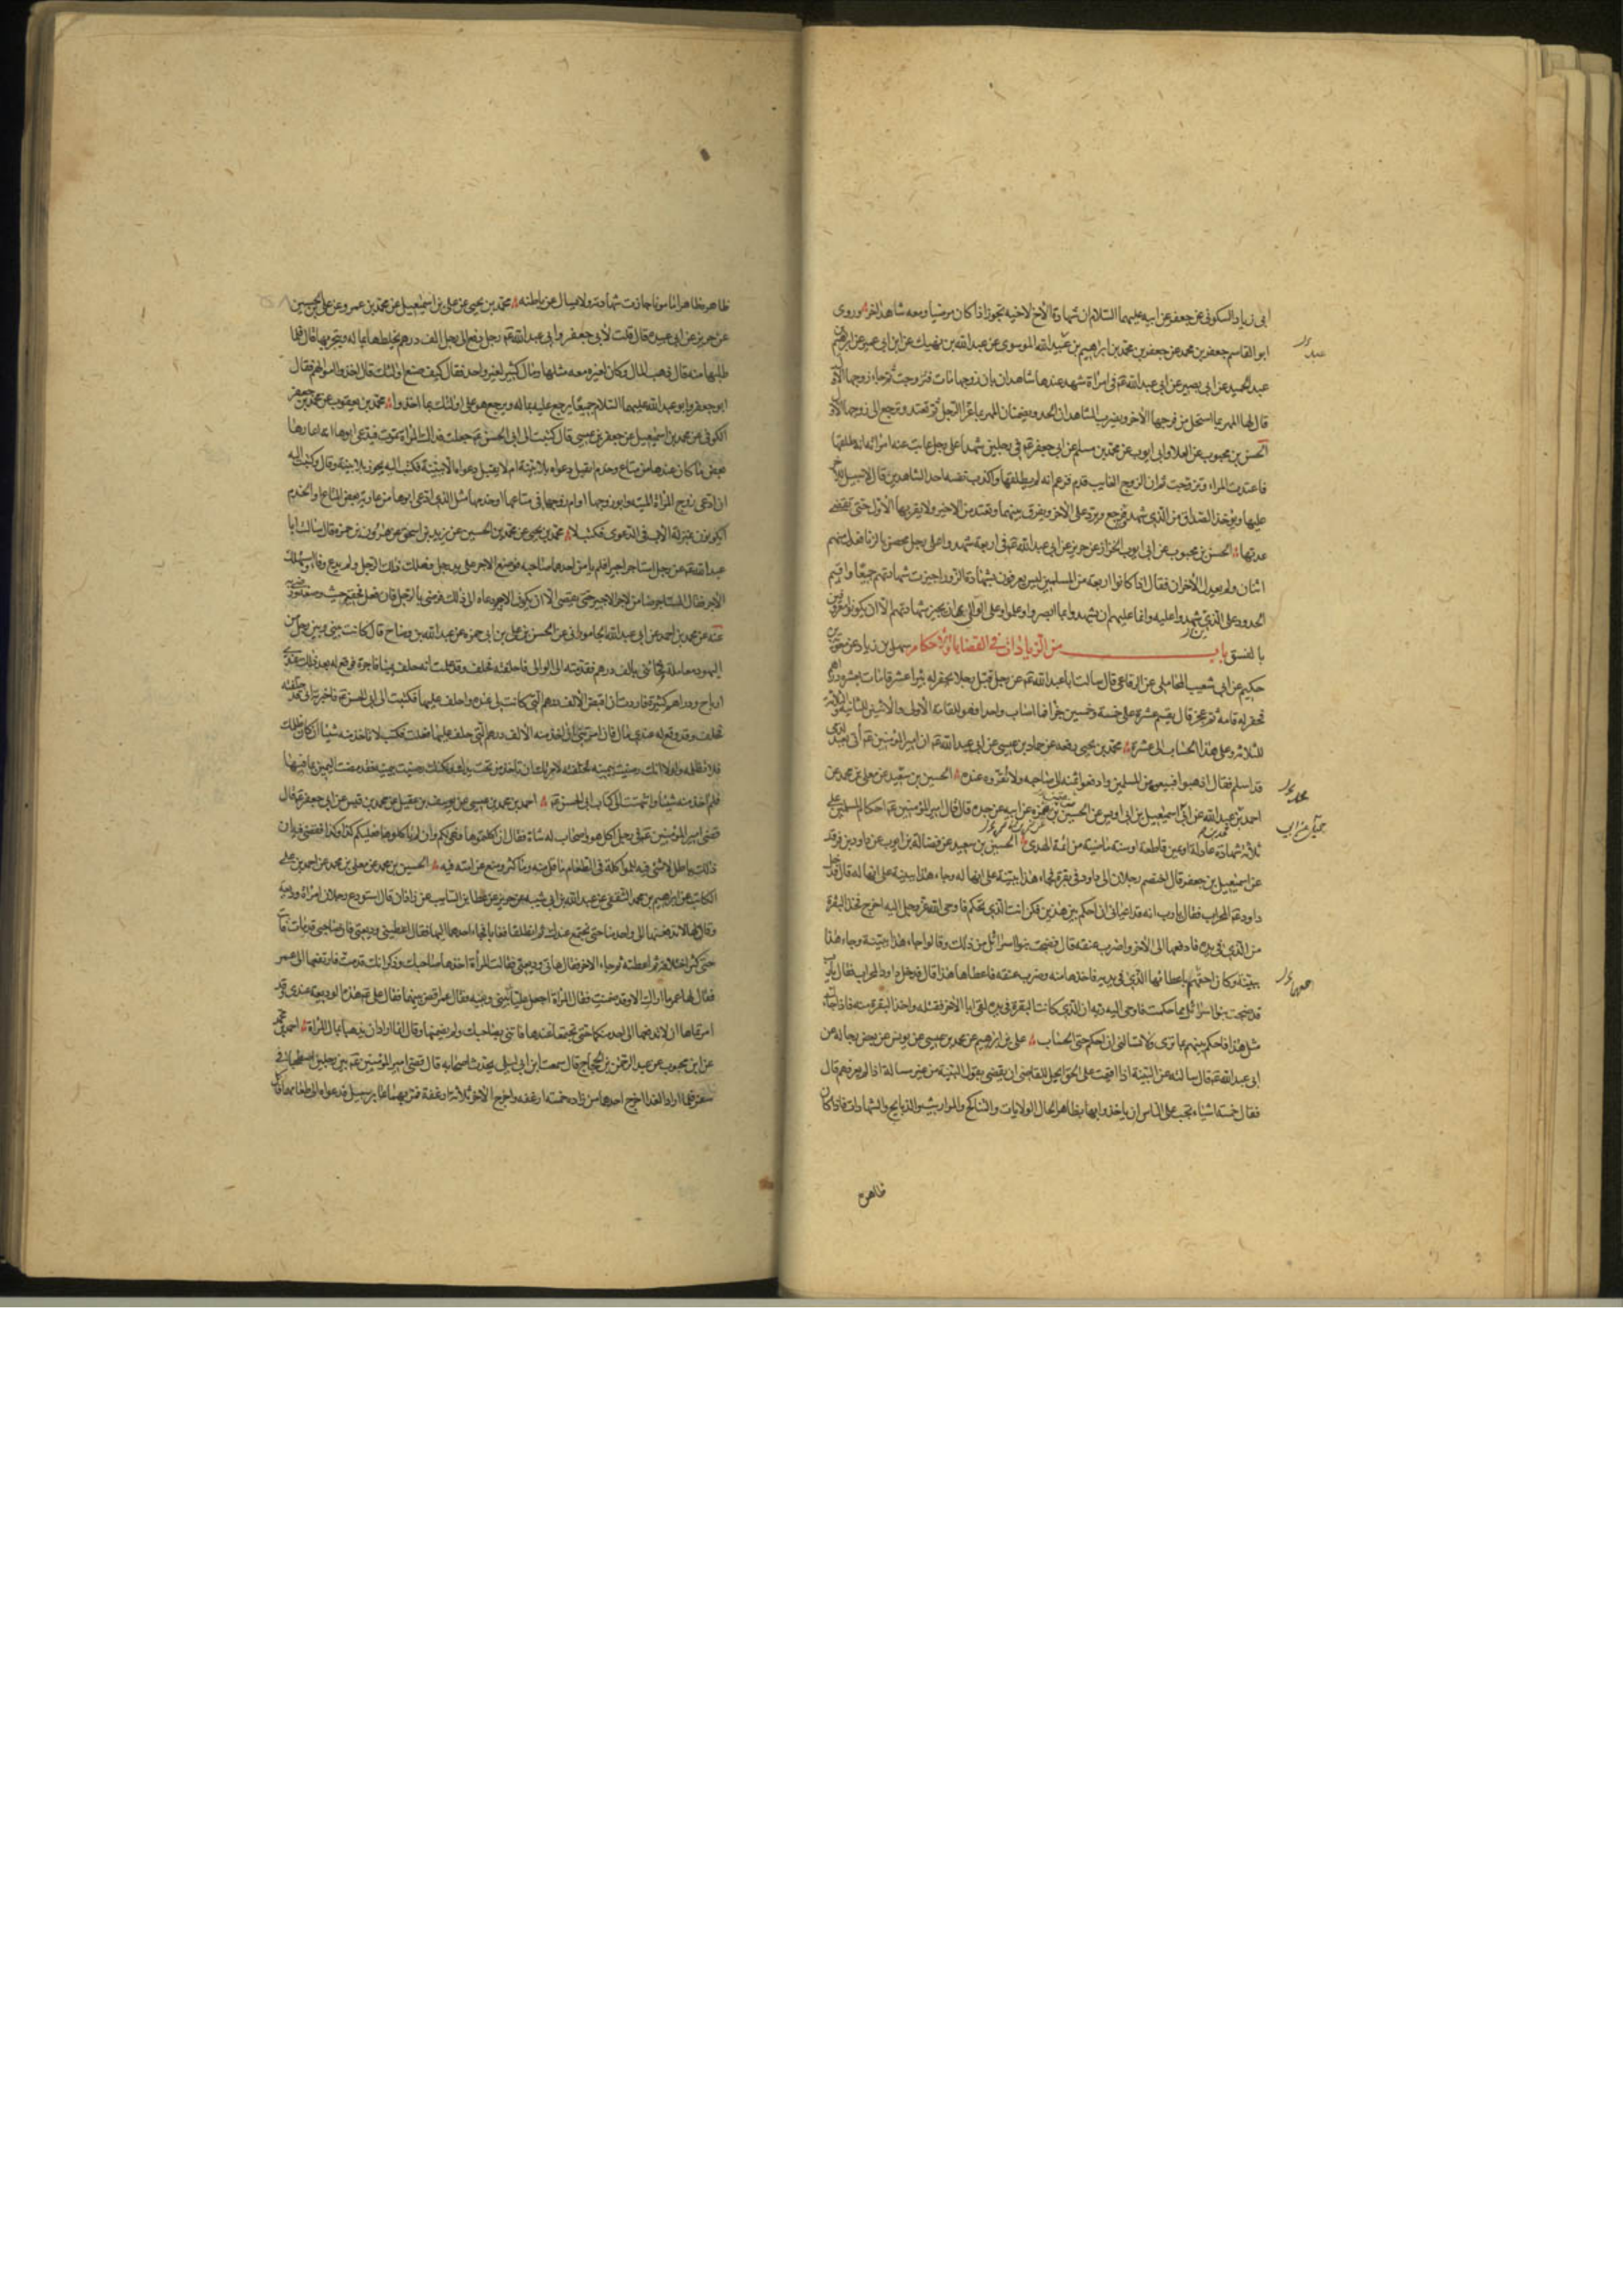 ابى زياد السكونى عن جعفر عن ابيه عليهما السلام ان شهادة الأخ لاخيه تجوز اذا كان مرضيا ومعه شاهد اخر وروى
ابو القاسم جعفر بن محمد عن جعفر بن محمد بن ابراهيم بن عبيد الله الموسوى عن عبد الله بن نهيك عن ابن ابى عمير عن ابراهيم
عبد الحميد عن ابى بصير عن ابى عبد الله عم فى امرأة شهد عندها شاهدان بان زوجها مات فتزوجت ثم جاء زوجها الأول
قال لها المهر بما استحل من فرجها الأخر ويضرب الشاهدان الحد ويضمنان المهر بما غرا الرجل ثم تعتد وترجع الى زوجها الأول
الحسن بن محبوب عن العلا وابى ايوب عن محمد بن مسلم عن ابى جعفر عم فى رجلين شهدا على رجل غايب عنه امرأته انه طلقها
فاعتدت المراة وتزوجت ثم ان الزوج الغايب قدم فزعم انه لم يطلقها واكذب نفسه احد الشاهدين قال لا سبيل للاخير
عليها ويؤخذ الصداق من الذى شهد فرجع ويرد على الاخر ويفرق بينهما وتعتد من الاخير ولا يقربها الأول حتى تنقضى
عدتها الحسن بن محبوب عن ابى ايوب الخزاز عن حريز عن ابى عبد الله عم فى اربعة شهدوا على رجل محصن بالزنا فعدل منهم
اثنان ولم يعدل الأخران فقال اذا كانوا اربعة من المسلمين ليس يعرفون بشهادة الزور اجيزت شهادتهم جميعا واقيم
الحدود على الذى شهدوا عليه وانما عليهم ان يشهدوا بما ابصروا وعلموا وعلى الوالى ان يجيز شهادتهم الا ان يكونوا معروفين
بالفسق باب من الزيادات فى القضايا والأحكام سهل بن زياد عن معوية بن
حكيم عن ابى شعيب المحاملى عن الرفاعى قال سالت ابا عبد الله عم عن رجل قبل رجلا يحفر له بئرا عشر قامات بعشرة دراهم
فحفر له قامة ثم عجز قال يقسم عشرة على خمسة وخمسين جزأ فما اصاب واحدا فهو للقامة الأولى والأثنين للثانية والثلاثة
للثلاثة وعلى هذا الحساب الى عشرة محمد بن يحيى رفعه عن حماد بن عيسى عن ابى عبد الله عم ان امير المؤمنين عم أتى بعبد ذمى
قد اسلم فقال اذهبوا فبيعوه من المسلمين وادفعوا ثمنه الى صاحبه ولا تقروه عنده الحسين بن سعيد عن معلى بن محمد عن
احمد بن عبيد الله عن ابى اسمعيل بن ابى اويس عن الحسين بن ضمرة عن ابيه عن جده قال قال امير المؤمنين عم احكام المسلمين على
ثلاثة شهادة عادلة او يمين قاطعة او سنة ماضية من ائمة الهدى الحسين بن سعيد عن فضالة بن ايوب عن داود بن فرقد
عن اسمعيل بن جعفر قال اختصم رجلان الى داود فى بقرة فجاء هذا ببينة على انها له وجاء هذا ببينة على انها له قال فدخل
داود عم المحراب فقال يا رب انه قد اعيانى ان احكم بين هذين فكن انت الذى تحكم فاوحى الله عز وجل اليه اخرج فخذ البقرة
من الذى فى يده فادفعها الى الأخر واضرب عنقه قال فضجت بنوا اسرائيل من ذلك وقالوا جاء هذا ببينة وجاء هذا
ببينة وكان احقهم باعطائها الذى فى يديه فاخذها منه وضرب عنقه فاعطاها هذا قال فدخل داود المحراب فقال يا رب
قد ضجت بنوا اسرائيل بما حكمت فاوحى اليه ربه ان الذى كانت البقرة فى يده لقى ابا الأخر فقتله واخذ البقرة منه فاذا جاءك
مثل هذا فاحكم بينهم بما ترى ولا تسالنى ان احكم حتى الحساب على بن ابراهيم عن محمد بن عيسى عن يونس عن بعض رجاله عن
ابى عبد الله عم قال سالته عن البينة اذا اقيمت على الحق ايحل للقاضى ان يقضى بقول البينة من غير مسالة اذا لم يعرفهم قال
فقال خمسة اشياء تجب على الناس ان ياخذوا بها بظاهر الحال الولايات والتناكح والمواريث والذبايح والشهادات فاذا كان
ظاهره
ظاهره ظاهرا مامونا جازت شهادته ولا يسال عن باطنه محمد بن يحيى عن على بن اسمعيل عن محمد بن عمرو عن على بن الحسين
عن حريز عن ابى عبيدة قال قلت لأبى جعفر وابى عبد الله عم رجل دفع الى رجل الف درهم يخلطها بماله ويتجر بها قال فلما
طلبها منه قال ذهب المال وكان لغيره معه مثلها ومال كثير لغير واحد فقال كيف صنع اولئك قال اخذوا اموالهم فقال
ابو جعفر وابو عبد الله عليهما السلام جميعا يرجع عليه بماله ويرجع هو على اولئك بما اخذوا محمد بن يعقوب عن محمد بن جعفر
الكوفى عن محمد بن اسمعيل عن جعفر بن عيسى قال كتبت الى ابى الحسن عم جعلت فداك المرأة تموت فيدعى ابوها انه اعارها
بعض ما كان عندها من متاع وخدم اتقبل دعواه بلا بينة ام لا يقبل دعواه الا ببينة فكتب اليه يجوز بلا بينة وقال وكتبت اليه
ان ادعى زوج المراة الميتة وابو زوجها او ام زوجها فى متاعها او خدمها مثل الذى ادعى ابوها من عارية بعض المتاع او الخدم
ايكونون بمنزلة الأب فى الدعوى فكتب لا محمد بن يحيى عن محمد بن الحسين عن يزيد بن اسحق عن هرون بن حمزة قال سالت ابا
عبد الله عم عن رجل استاجر اجيرا فلم يامن احدهما صاحبه فوضع الاجر على يد رجل فهلك ذلك الرجل ولم يدع وفاء واستهلك
الأجر فقال المستاجر ضامن لاجر الاجير حتى يقضى الا ان يكون الاجير دعاه الى ذلك فرضى بالرجل فان فعل فحقه حيث وضعه ورضى به
عنه عن محمد بن احمد عن ابى عبد الله الجامورانى عن الحسن بن على بن ابى حمزه عن عبد الله بن وضاح قال كانت بينى وبين رجل من
اليهود معاملة فخاننى بالف درهم فقدمته الى الوالى فاحلفته فحلف وقد علمت انه حلف يمينا فاجرة فوقع له بعد ذلك عندى
ارباح ودراهم كثيرة فاردت ان اقبض الألف درهم التى كانت لى عنده واحلف عليها فكتبت الى ابى الحسن عم فاخبرته انى قد حلفته
فحلف وقد وقع له عندى مال فان امرتنى ان اخذ منه الألف درهم التى حلف عليها فعلت فكتب لا تاخذ منه شيئا ان كان ظلمك
فلا تظلمه ولولا انك رضيت بيمينه فحلفته لامرتك ان تاخذ من تحت يدك ولكنك رضيت بيمينه فقد مضت اليمين بما فيها
فلم آخذ منه شيئا وانتهيت الى كتاب ابى الحسن عم احمد بن محمد بن عيسى عن يوسف بن عقيل عن محمد بن قيس عن ابى جعفر عم قال
قضى امير المؤمنين عم فى رجل اكل هو واصحاب له شاة فقال ان اكلتموها فهى لكم وان لم تاكلوها فعليكم كذا وكذا فقضى فيه ان
ذلك باطل لا شئ فيه للمواكلة فى الطعام ما قل منه وما كثر ومنع غرامته فيه الحسين بن محمد عن معلى بن محمد عن احمد بن على
الكاتب عن ابراهيم بن محمد الثقفى عن عبد الله بن ابى شيبه عن حريز عن عطا بن السايب عن زاذان قال استودع رجلان امرأة وديعة
وقالا لها لا تدفعيها الى واحد منا حتى نجتمع عندك ثم انطلقا فغابا فجاء احدهما اليها فقال اعطينى وديعتى فان صاحبى قد مات فابت
حتى كثر اختلافه ثم اعطته ثم جاء الاخر فقال هاتى وديعتى فقالت المرأة اخذها صاحبك وذكر انك قد مت فارتفعا الى عمر
فقال لها عمر ما اراك الا وقد ضمنت فقال المرأة اجعل عليا بينى وبينه وقال عمر اقض بينهما فقال على عم هذه الوديعة عندى وقد
امرتماها ان لا تدفعها الى واحد منكما حتى تجتمعا عندها فاتنى بصاحبك ولم يضمنها وقال انما ارادا ان يذهبا بمال المرأة احمد بن محمد
عن ابن محبوب عن عبد الرحمن بن الحجاج قال سمعت ابن ابى ليلى يحدث اصحابه قال قضى امير المؤمنين عم بين رجلين اصطحبا فى
سفر فلما ارادا الغدا اخرج احدهما من زاده خمسة ارغفة واخرج الأخر ثلاثة ارغفة فمر بهما عابر سبيل فدعواه الى طعامهما فاكل